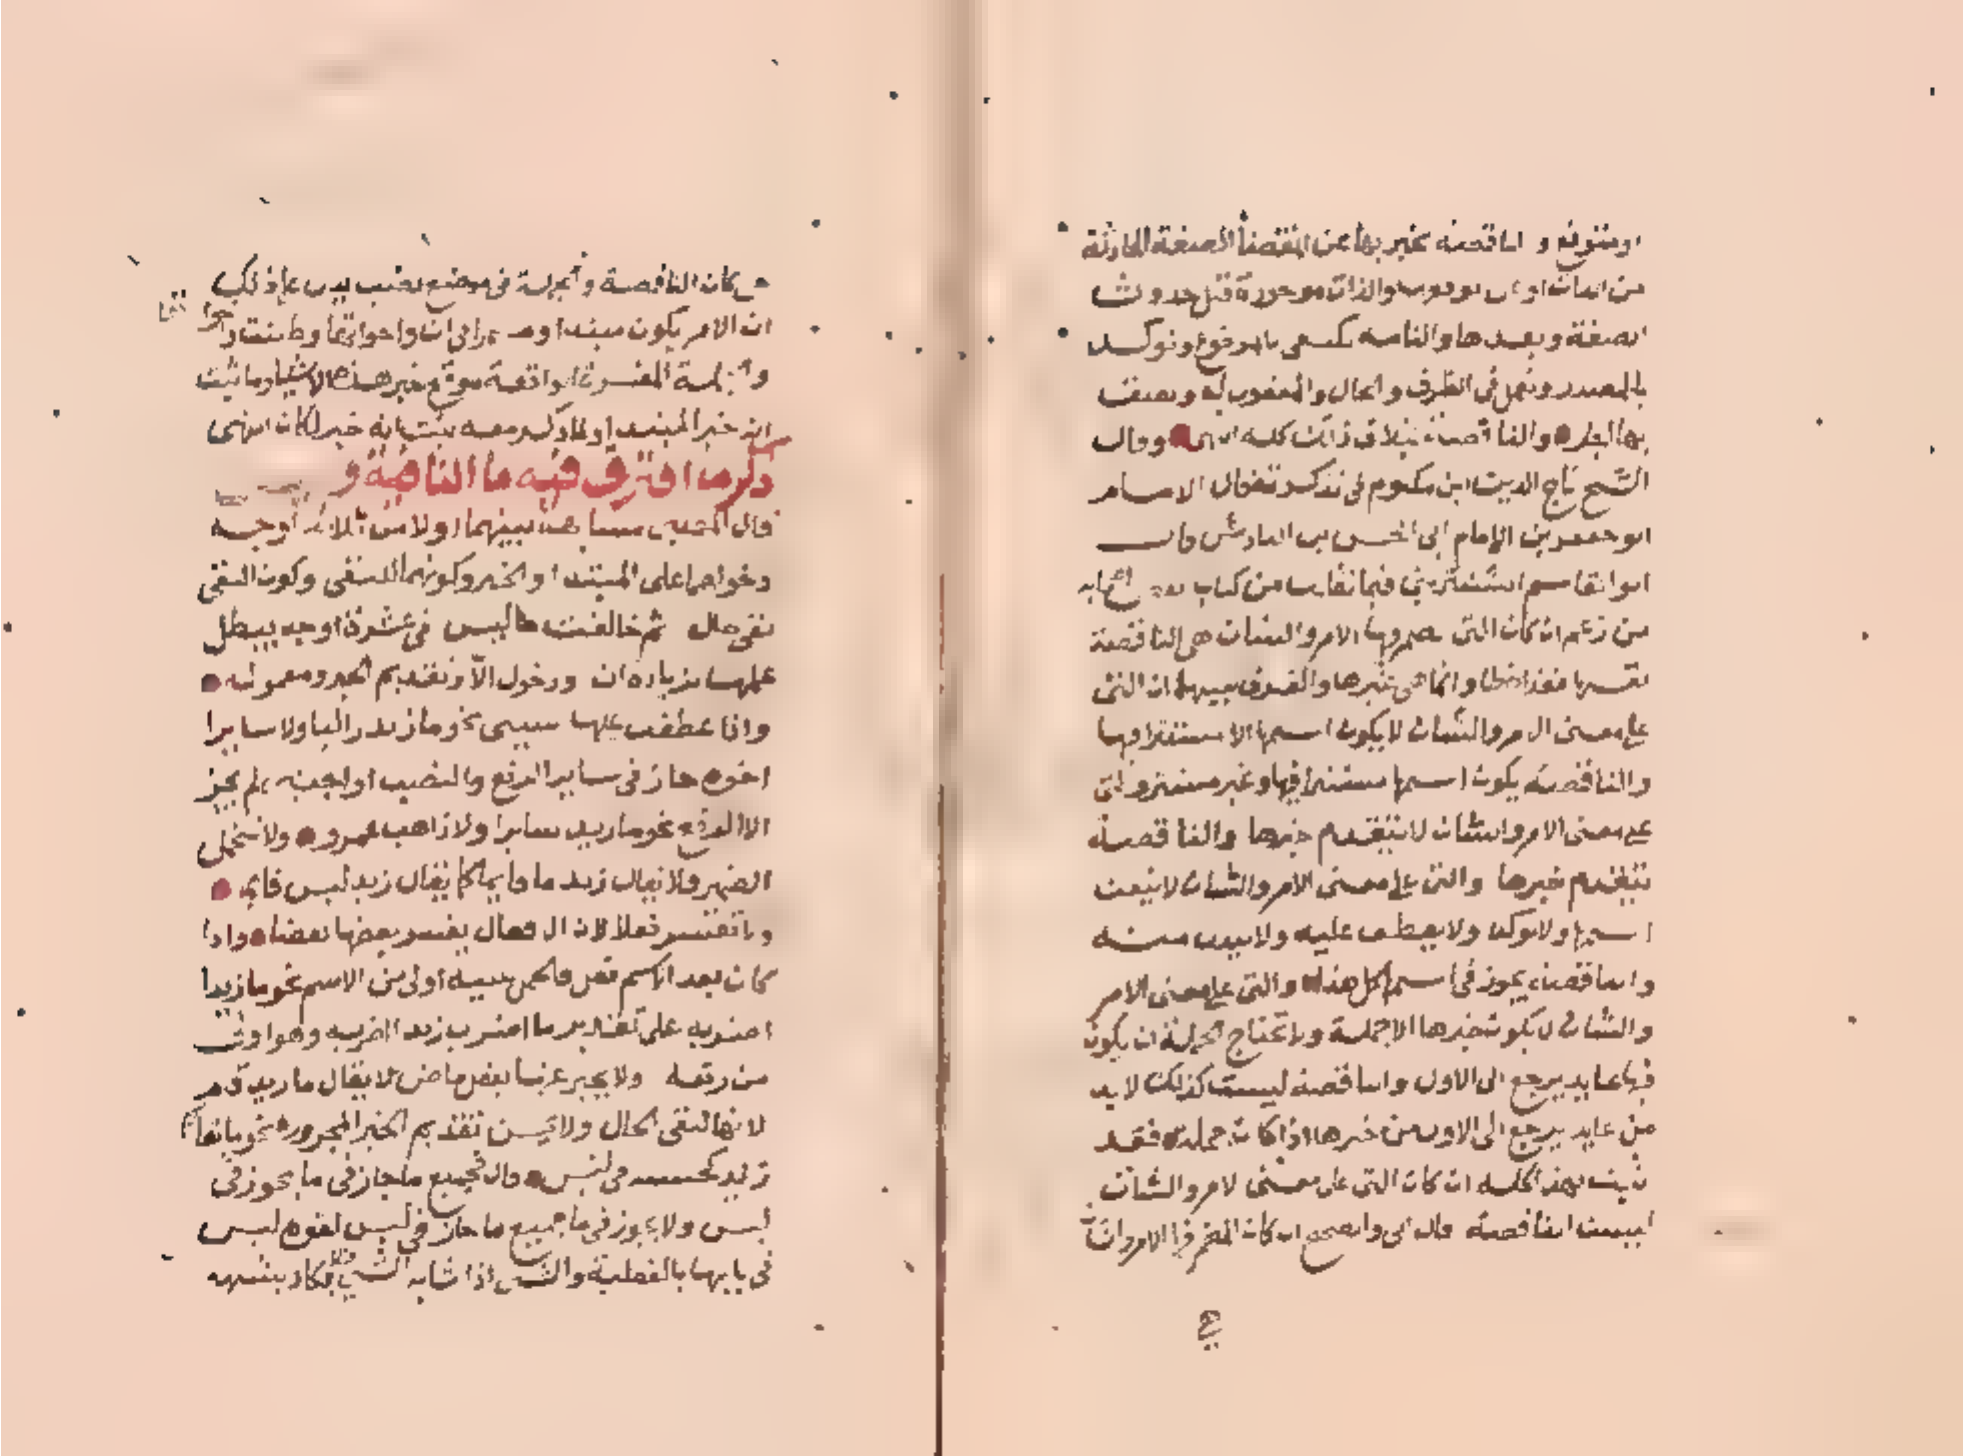 والناقصة يخبر بها عن انقضاء الصفة الحادثة
من الذات والذات موجودة قبل حدوث
الصفة وبعدها والتامة تكتفى بالمرفوع وتوكد
بالمصدر وتعمل فى الظرف والحال والمفعول له ويصلت
بها والناقصة بخلاف ذلك كله انتهى وقال
الشيخ تاج الدين ابن مكتوم فى تذكرته قال الامام
ابو جعفر بن الإمام ابى الحسن بن الباذش قال
ابو القاسم الشنترينى فيما نقلت من كتاب بعض اصحابه
من زعم ان كان التى يضمر فيها الامر والشان هى الناقصة
نفسها فقد اخطا وانما هى غيرها والفرق بينهما ان التى
على معنى الامر والشان لا يكون اسمها الا مستترا فيها
والناقصة يكون اسمها مستترا فيها وغير مستتر والتى
على معنى الامر والشان لا يتقدم خبرها والناقصة
يتقدم خبرها والتى على معنى الامر والشان لا ينعت
اسمها ولا يوكد ولا يعطف عليه ولا يبدل منه
والناقصة يجوز فى اسمها كل هذا والتى على معنى الامر
والشان لا يكون خبرها الا جملة ولا تحتاج الجملة ان يكون
فيها عايد يرجع الى الاول والناقصة ليست كذلك لا بد
من عايد يرجع الى الاول من خبرها اذا كان جملة فقد
ثبت بهذا كله ان كان التى على معنى الامر والشان
ليست الناقصة قال ابى والصحيح ان كان المضمر فيها الامر والشان
هى كان الناقصة والجملة فى موضع نصب يدل على ذلك
ان الامر يكون مبتدا ان واخواتها وظننت واخواتها
والجملة المفسرة الواقعة موقع خبر هذه الاشياء وما ثبت
انه خبر المبتدا ثبت انه خبر لكان انتهى
ذكر ما افترق فيه ما النافية و ليس
قال المهلبى المشابهة بينهما اولا من ثلاثة اوجه
دخولهما على المبتدا والخبر وكونهما للنفى وكون النفى
نفى حال ثم خالفت ما ليس فى عشرة اوجه يبطل
عملها بزيادة ان ودخول الا وتقديم الخبر ومعموله
واذا عطفت عليها سببى نحو ما زيد راكبا ولا سايرا
اخوه جاز فى سايرا الرفع والنصب او اجنبى لم يجز
الا الرفع نحو ما زيد سايرا ولا ذاهب عمرو ولا تتحمل
الضمير فلا يقال زيد ما قايما كما يقال زيد ليس قايما
ولا تفسر فعلا لان الافعال يفسر بعضها بعضا واذا
كان بعد الاسم فعل فالحمل عليه اولى من الاسم نحو ما زيدا
اضربه على تقدير ما اضرب زيدا اضربه وهو اولى
من رفعه ولا يخبر عنها بفعل ماض لا يقال ما زيد قام
لانها لنفى الحال ولا يحسن تقديم الخبر المجرور نحو ما بقايم
زيد كحسنه فى ليس قال فجميع ما جاز فى ما يجوز فى
ليس ولا يجوز فى ما جميع ما جاز فى ليس لقوة ليس
فى بابها بالفعلية والشى اذا شابه الشى فلا يكاد يشبهه